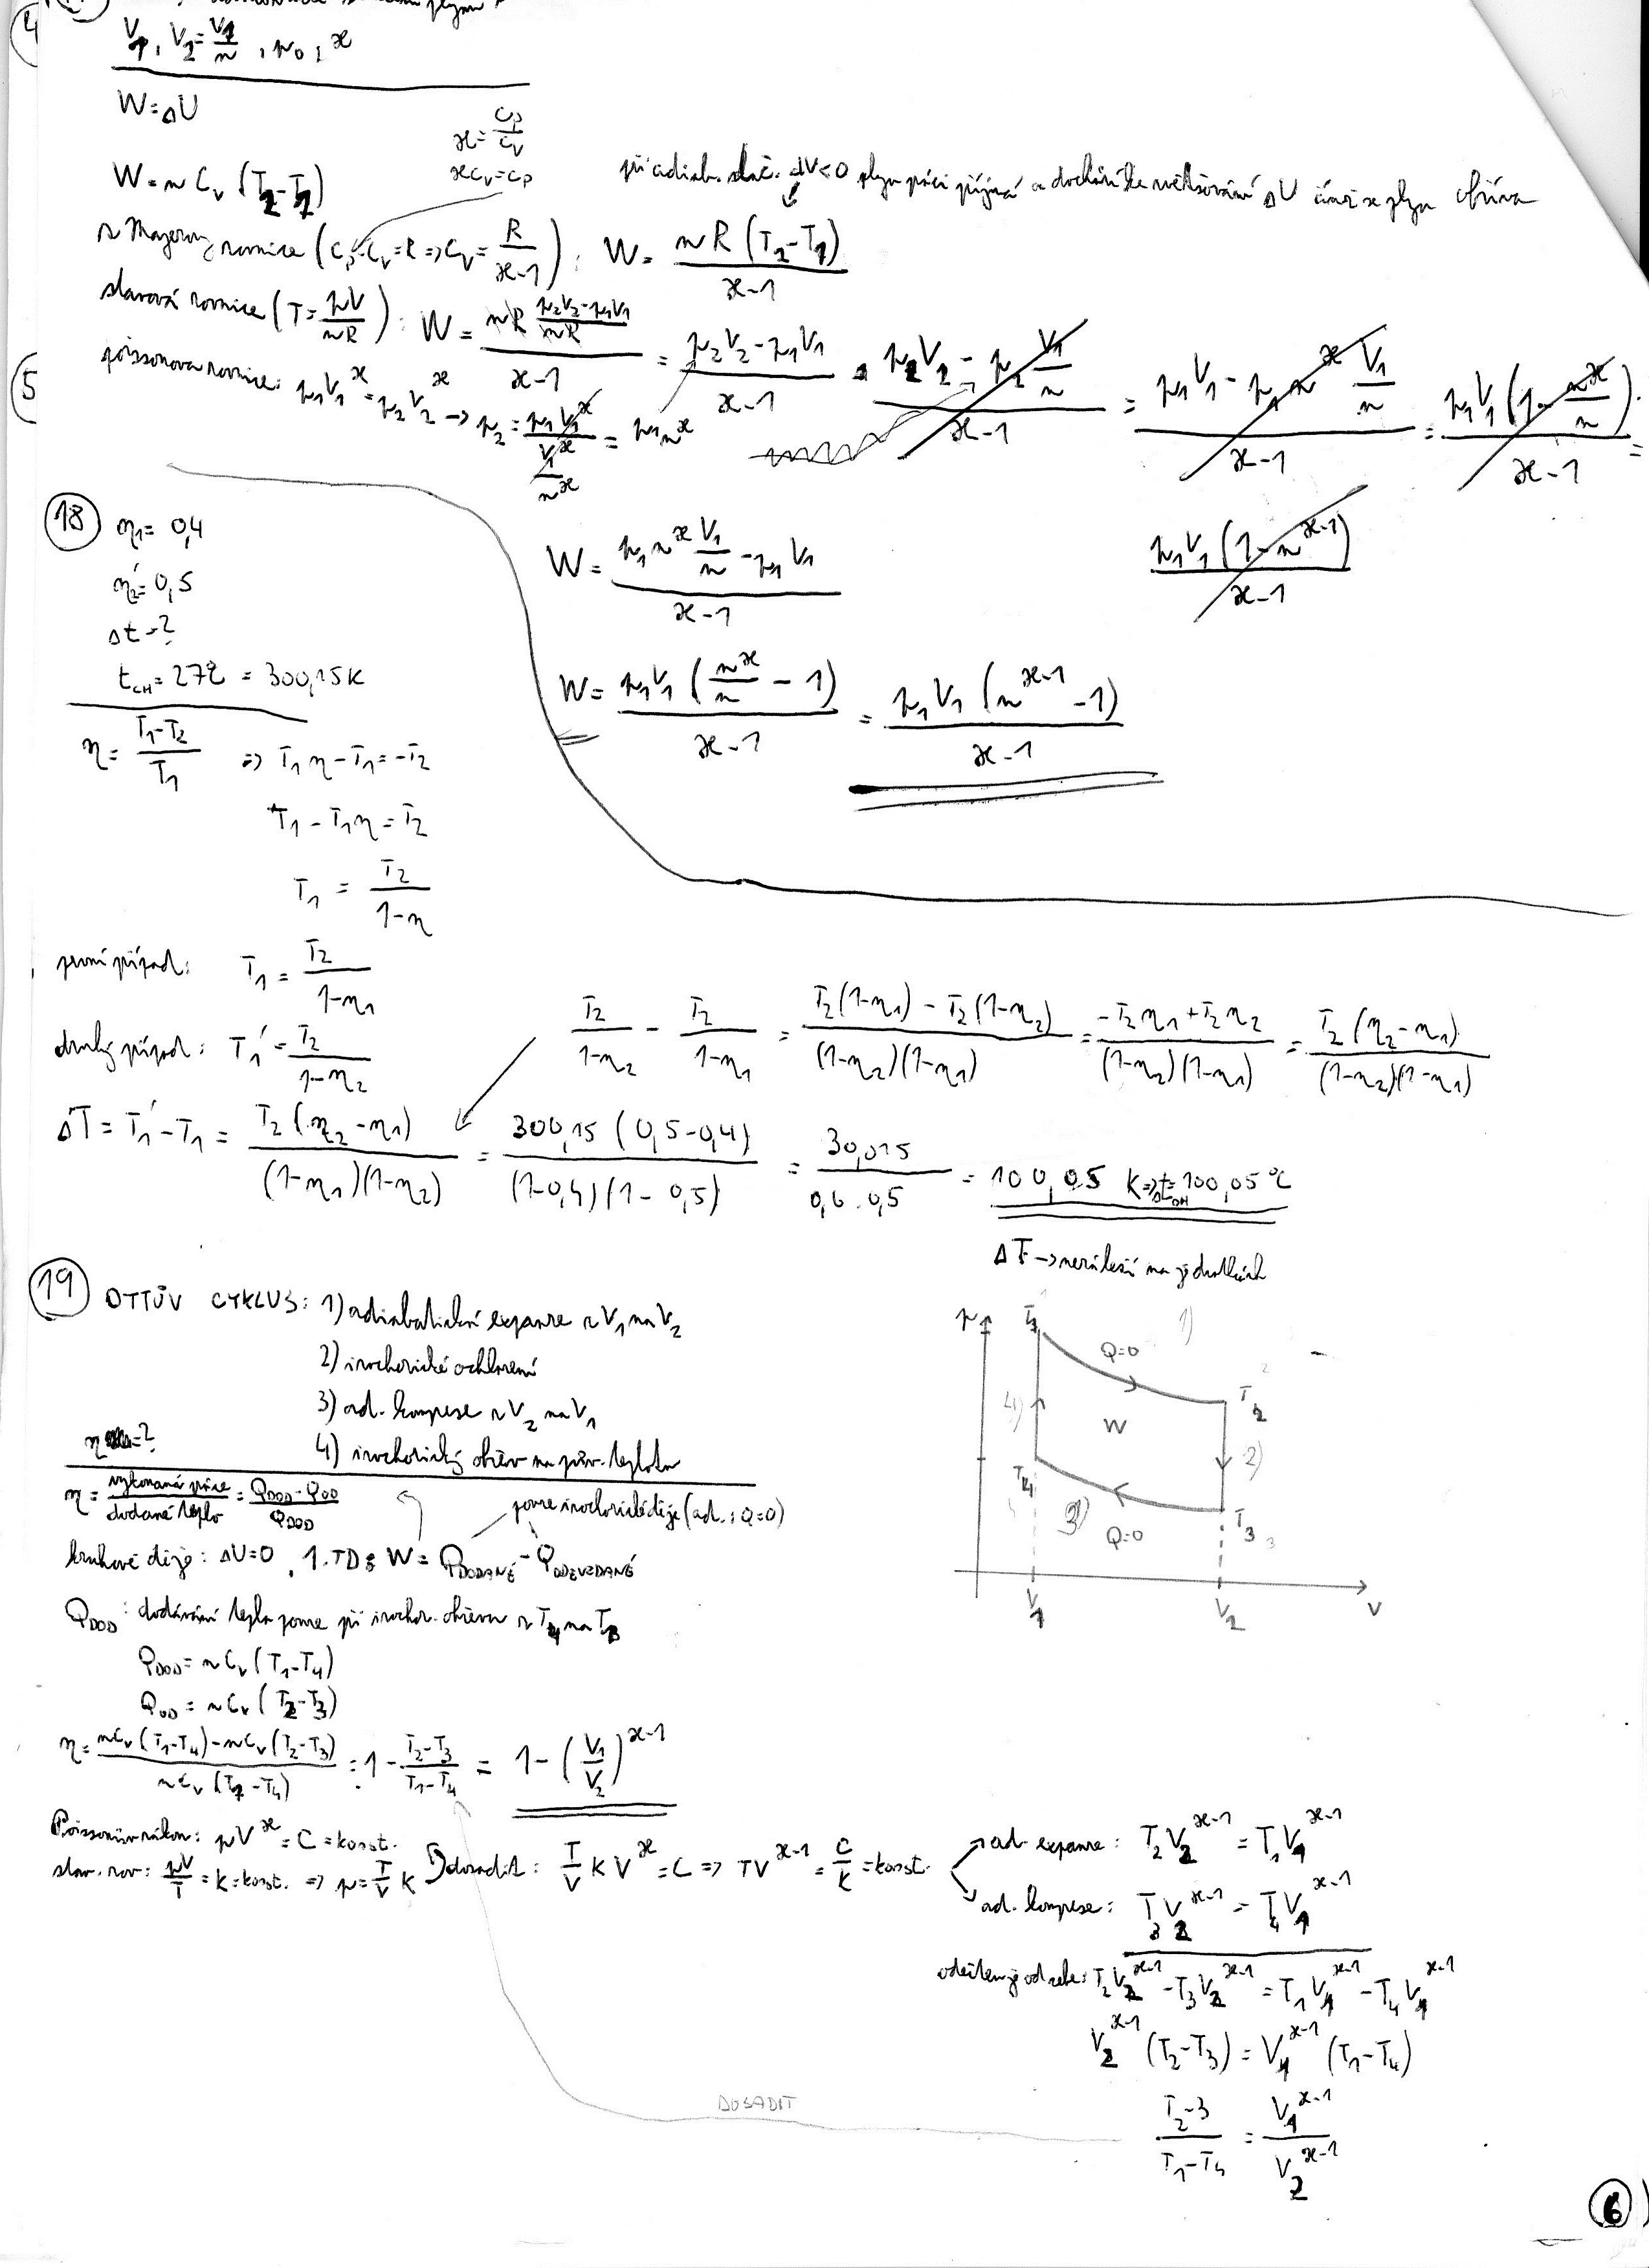 V₁, V₂ = V₁/n, p₀, ϰ
W = ΔU
ϰ = Cp/Cv
ϰCv = Cp
W = n Cv (T₂ - T₁)
při adiab. stlač. dV<0 plyn práci přijímá a dochází ke zvětšování ΔU čímž se plyn ohřívá
z Mayerovy rovnice (Cp-Cv = R ⇒ Cv = R/(ϰ-1)): W = nR(T₂-T₁)/(ϰ-1)
stavová rovnice (T = pV/nR): W = (nR (p₂V₂-p₁V₁)/nR)/(ϰ-1) = (p₂V₂-p₁V₁)/(ϰ-1) = (p₂V₂ - p₂ V₁/n)/(ϰ-1) = (p₁V₁ - p₁n^ϰ V₁/n)/(ϰ-1) = p₁V₁(1 - n^ϰ/n)/(ϰ-1) =
poissonova rovnice: p₁V₁^ϰ = p₂V₂^ϰ → p₂ = p₁V₁^ϰ/(V₁^ϰ/n^ϰ) = p₁n^ϰ
p₁V₁(1-n^(ϰ-1))/(ϰ-1)
W = (p₁n^ϰ V₁/n - p₁V₁)/(ϰ-1)
W = p₁V₁(n^ϰ/n - 1)/(ϰ-1) = p₁V₁(n^(ϰ-1) - 1)/(ϰ-1)
4
5
18
η₁ = 0,4
η₂ = 0,5
Δt = ?
t_CH = 27°C = 300,15K
η = (T₁-T₂)/T₁ ⇒ T₁η - T₁ = -T₂
T₁ - T₁η = T₂
T₁ = T₂/(1-η)
první případ: T₁ = T₂/(1-η₁)
druhý případ: T₁' = T₂/(1-η₂)
T₂/(1-η₂) - T₂/(1-η₁) = (T₂(1-η₁) - T₂(1-η₂))/((1-η₂)(1-η₁)) = (-T₂η₁+T₂η₂)/((1-η₂)(1-η₁)) = T₂(η₂-η₁)/((1-η₂)(1-η₁))
ΔT = T₁' - T₁ = T₂(η₂-η₁)/((1-η₁)(1-η₂)) = 300,15(0,5-0,4)/((1-0,4)(1-0,5)) = 30,015/(0,6·0,5) = 100,05 K ⇒ Δt_OH = 100,05°C
ΔT → nezáleží na jednotkách
19
OTTŮV CYKLUS: 1) adiabatická expanze z V₁ na V₂
2) izochorické ochlazení
3) ad. komprese z V₂ na V₁
4) izochorický ohřev na pův. teplotu
η = ?
η = vykonaná práce/dodané teplo = (Q_DOD - Q_OD)/Q_DOD
pouze izochorické děje (ad.: Q=0)
kruhové děje: ΔU=0, 1.TDz W = Q_DODANÉ - Q_ODEVZDANÉ
Q_DOD: dodávání tepla pouze při izochor. ohřevu z T₄ na T₁
Q_DOD = nCv(T₁-T₄)
Q_OD = nCv(T₂-T₃)
η = (nCv(T₁-T₄) - nCv(T₂-T₃))/(nCv(T₁-T₄)) = 1 - (T₂-T₃)/(T₁-T₄) = 1 - (V₁/V₂)^(ϰ-1)
p
T₁
1)
Q=0
T₂
2
4)
W
2)
T₄
3)
Q=0
T₃
3
V₁
V₂
V
Poissonův zákon: pV^ϰ = C = konst.
stav. rov: pV/T = K = konst. ⇒ p = T/V K
dosadit: T/V K V^ϰ = C ⇒ TV^(ϰ-1) = C/K = konst.
ad. expanze: T₂V₂^(ϰ-1) = T₁V₁^(ϰ-1)
ad. komprese: T₃V₂^(ϰ-1) = T₄V₁^(ϰ-1)
odečteme je od sebe: T₂V₂^(ϰ-1) - T₃V₂^(ϰ-1) = T₁V₁^(ϰ-1) - T₄V₁^(ϰ-1)
V₂^(ϰ-1) (T₂-T₃) = V₁^(ϰ-1) (T₁-T₄)
DOSADIT
(T₂-3)/(T₁-T₄) = V₁^(ϰ-1)/V₂^(ϰ-1)
6